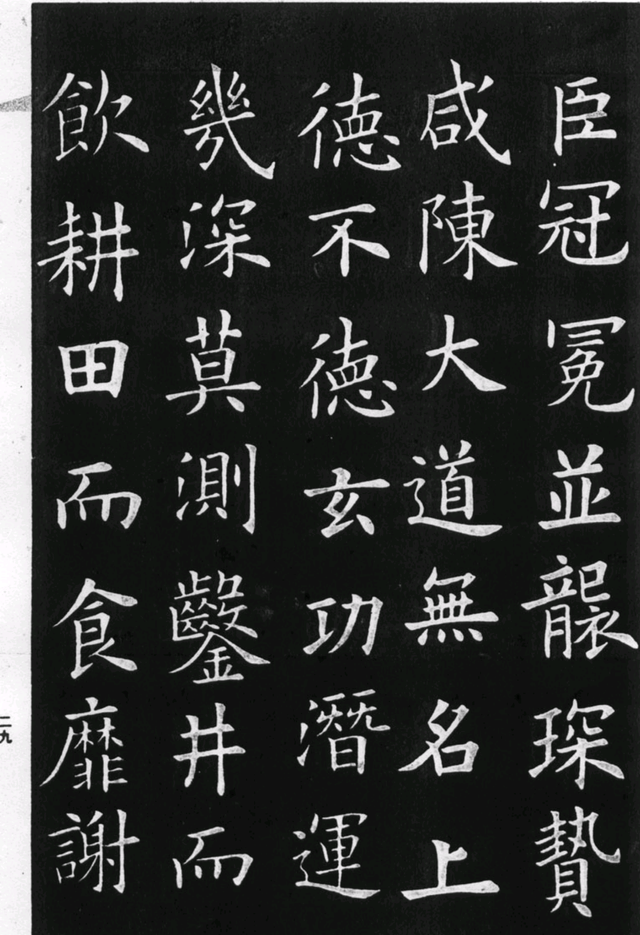 臣冠冕並襲琛贄
咸陳大道無名上
德不德玄功潛運
幾深莫測鑿井而
飲耕田而食靡謝
二九